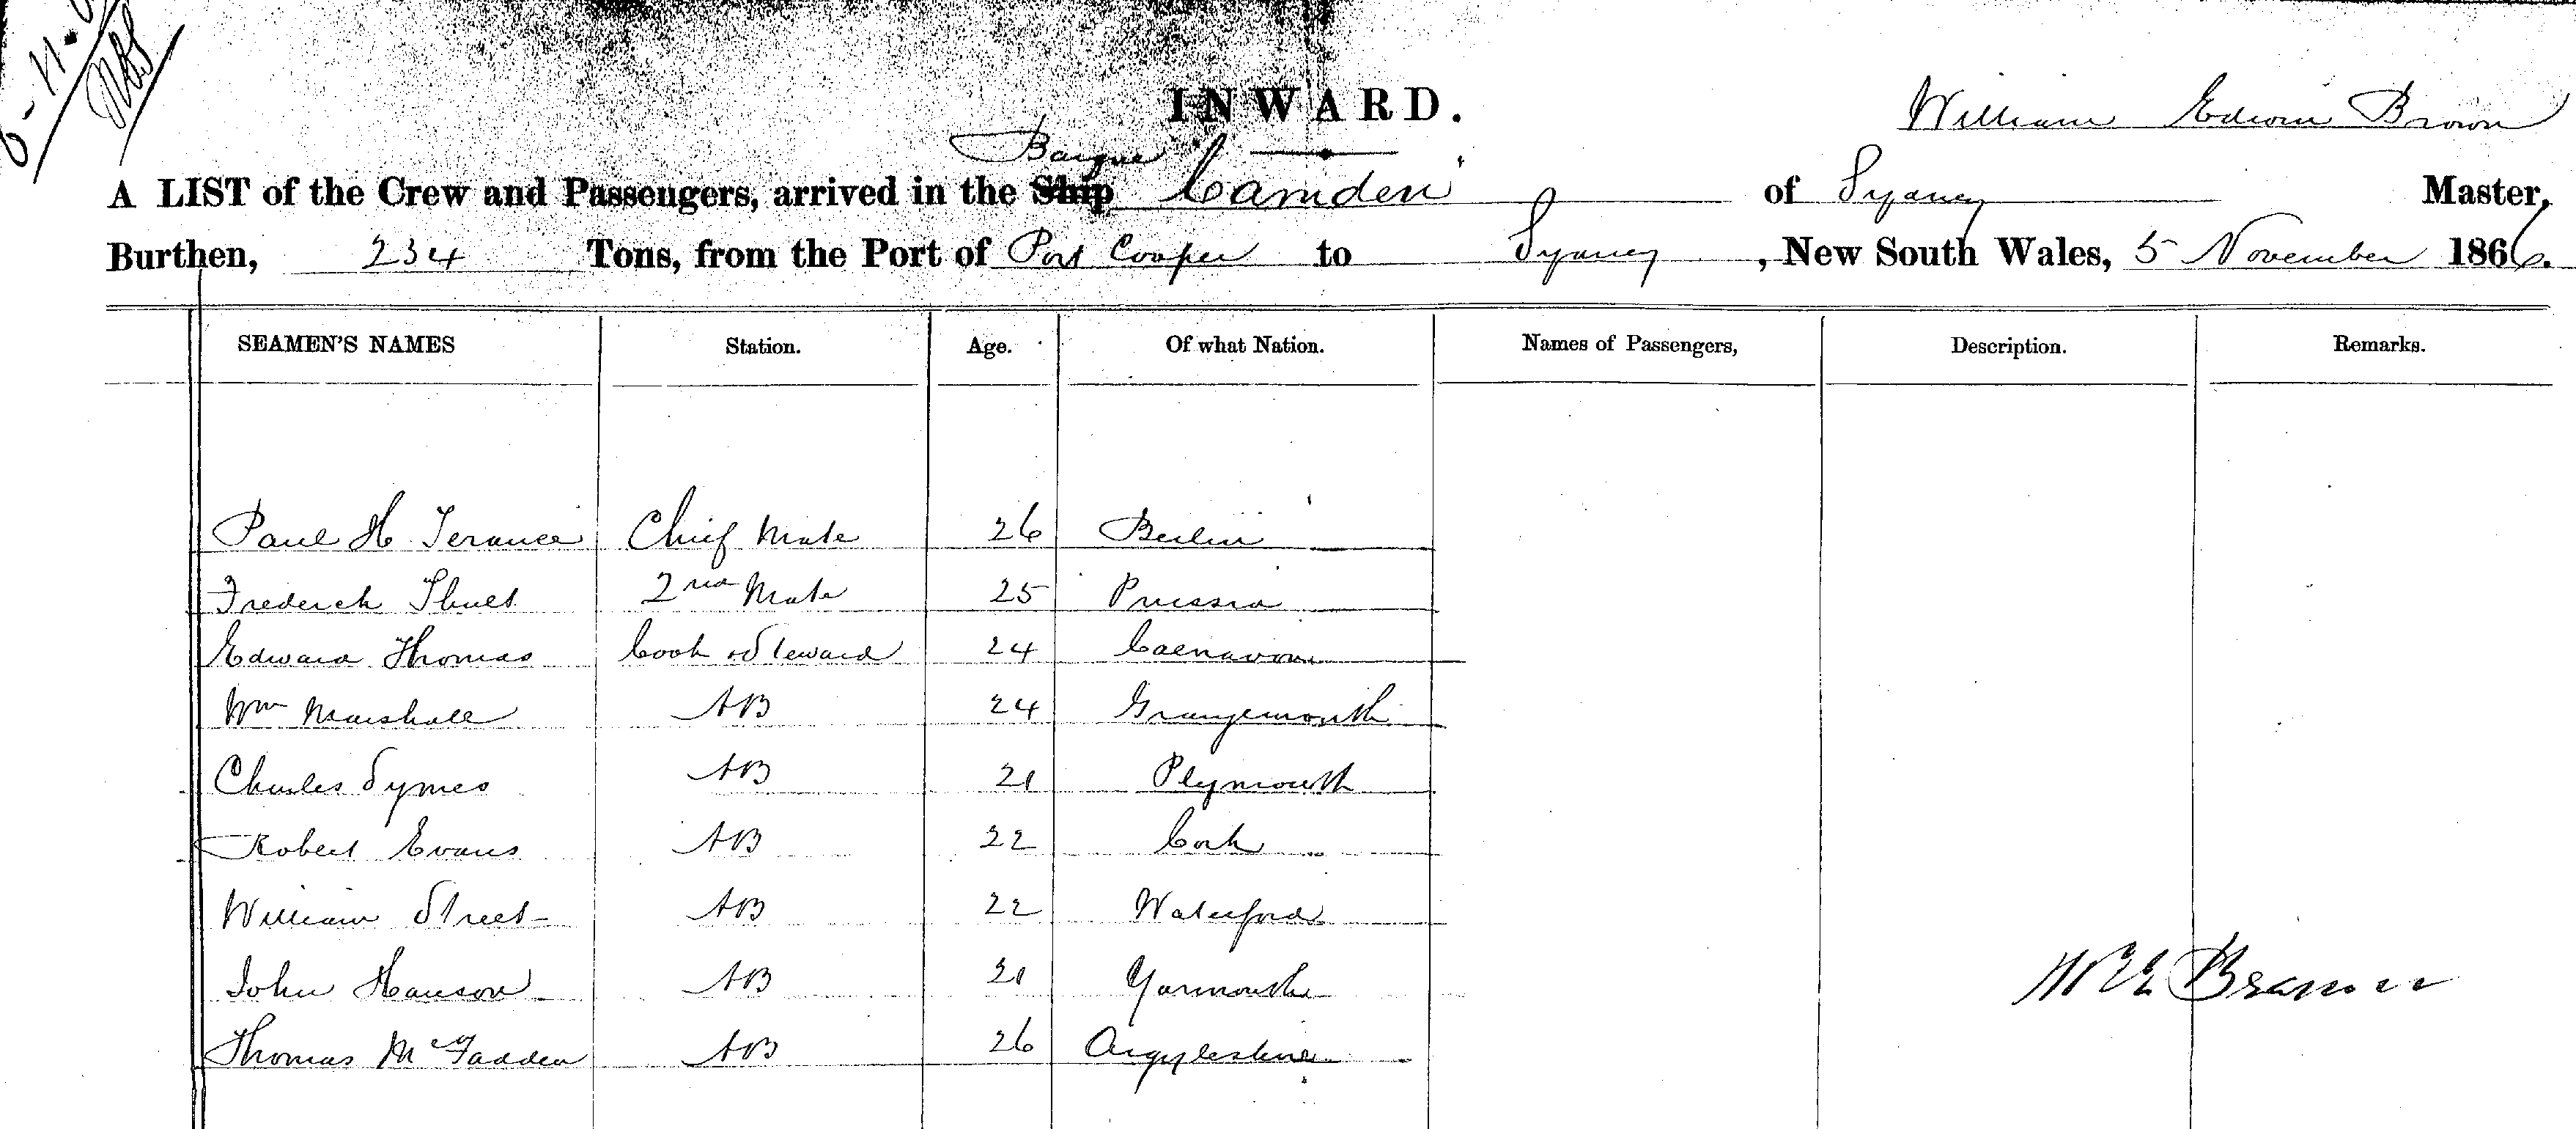 INWARD.
William Edwin Brown
A LIST of the Crew and Passengers, arrived in the Ship Barque Camden of Sydney Master,
Burthen, 234 Tons, from the Port of Port Cooper to Sydney, New South Wales, 5 November 1866.
SEAMEN'S NAMES Station. Age. Of what Nation. Names of Passengers, Description. Remarks.
Paul H Chief Mate 26 Berlin
Frederick 2nd Mate 25 Prussia
Edward Thomas Cook & Steward 24 Caenavon
Wm Marshall AB 24 Grangemouth
Charles Symes AB 21 Plymouth
Robert Evans AB 22 Cork
William Street AB 22 Waterford
John Hanson AB 21 Yarmouth
W E Brown
Thomas McFadden AB 26 Argyleshire